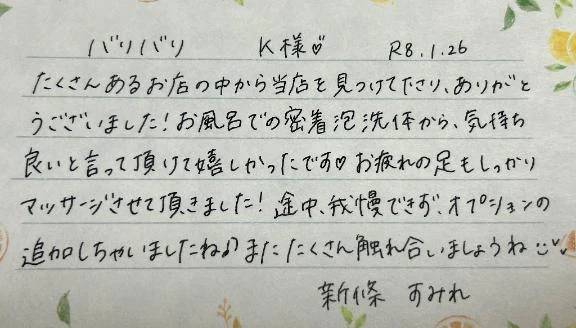 バリバリ K様♡ R8.1.26
たくさんあるお店の中から当店を見つけて下さり、ありがと
うございました！お風呂での密着泡洗体から、気持ち
良いと言って頂けて嬉しかったです♡お疲れの足もしっかり
マッサージさせて頂きました！途中、我慢できず、オプションの
追加しちゃいましたね♪またたくさん触れ合いましょうね
新條 すみれ